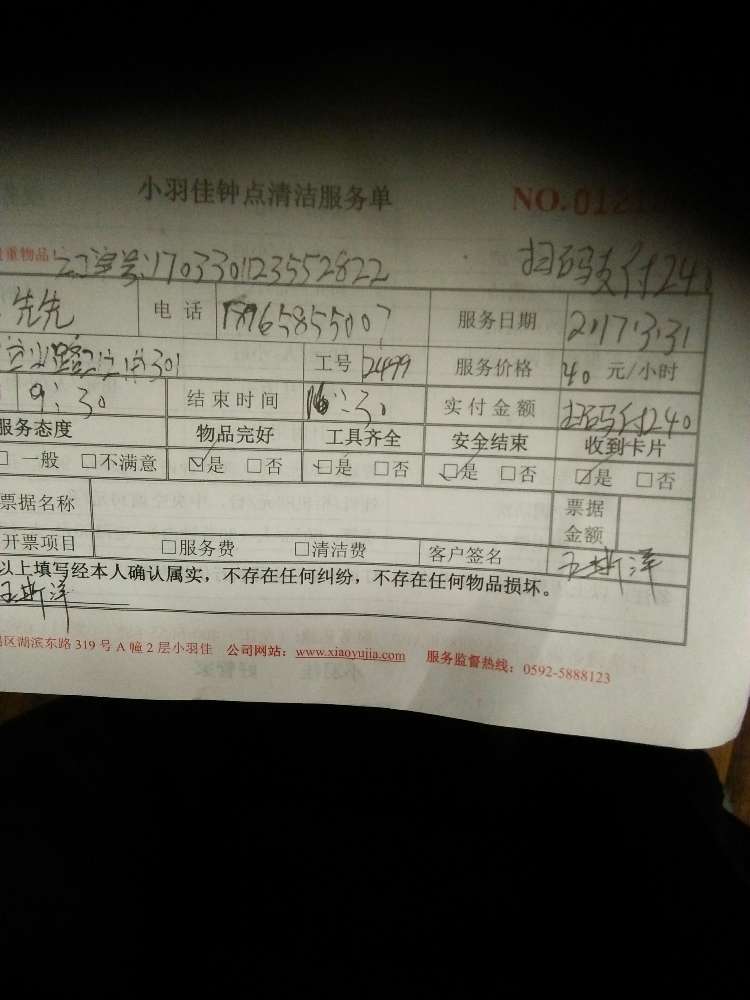 小羽佳钟点清洁服务单 NO.012
重物品！ 订单号:170330123552822 扫码支付240
电话 服务日期 2017.3.31
301 工号 2499 服务价格 40 元/小时
9:30 结束时间 16:30 实付金额 扫码付240
服务态度 物品完好 工具齐全 安全结束 收到卡片
□一般 □不满意 ☑是 □否 ☑是 □否 ☑是 □否 ☑是 □否
票据名称 票据金额
开票项目 □服务费 □清洁费 客户签名 王斯洋
以上填写经本人确认属实，不存在任何纠纷，不存在任何物品损坏。
王斯洋
区湖滨东路 319 号 A 幢 2 层小羽佳 公司网站：www.xiaoyujia.com 服务监督热线：0592-5888123